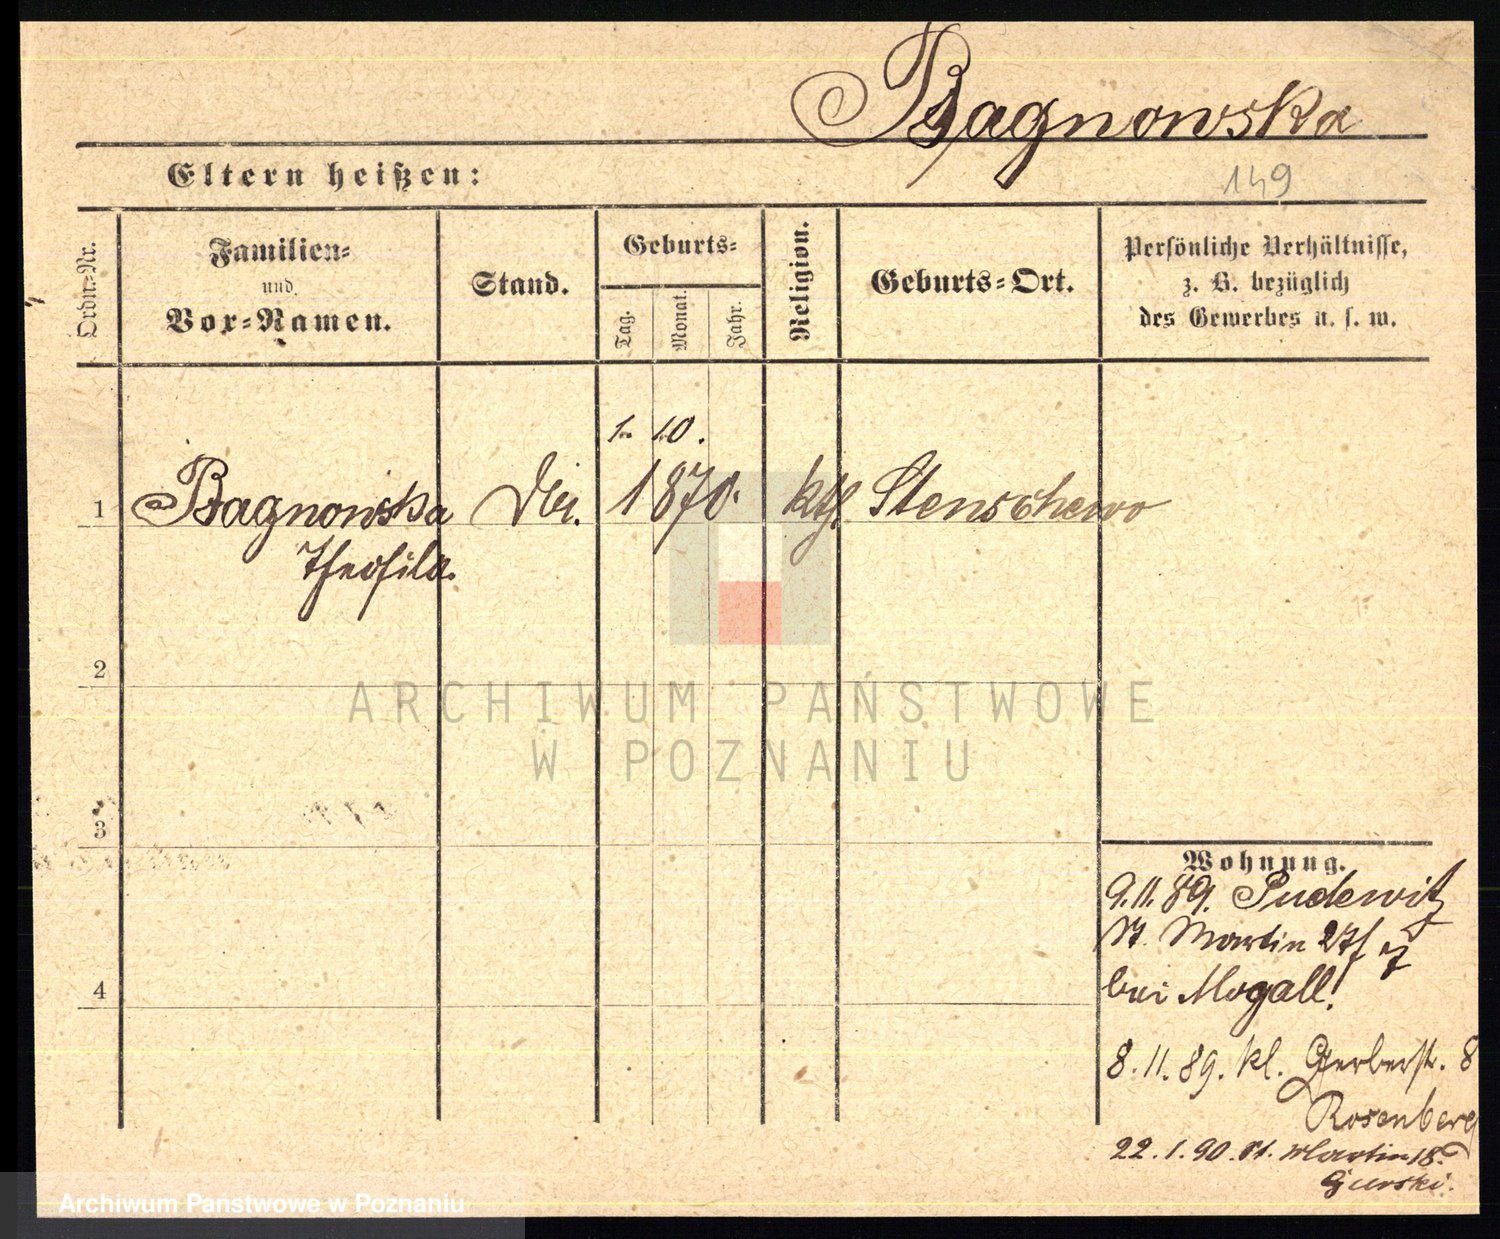 Bagnowska
Eltern heißen:
149
Ordn.-Nr.
Familien-
und
Vor-Namen.
Stand.
Geburts-
Tag.
Monat.
Jahr.
Religion.
Geburts-Ort.
Persönliche Verhältnisse,
z. B. bezüglich
des Gewerbes u. s. w.
1. 10.
1 Bagnowska 1870. kth. Stenschewo
Theofila.
2
ARCHIWUM PAŃSTWOWE
W POZNANIU
3
4
Wohnung.
9.11.89. Pudewitz
St. Martin 27
bei Mogall!
8.11.89. kl. Gerberstr. 8
Rosenberg
22.1.90. St. Martin 18.
Gurski.
Archiwum Państwowe w Poznaniu